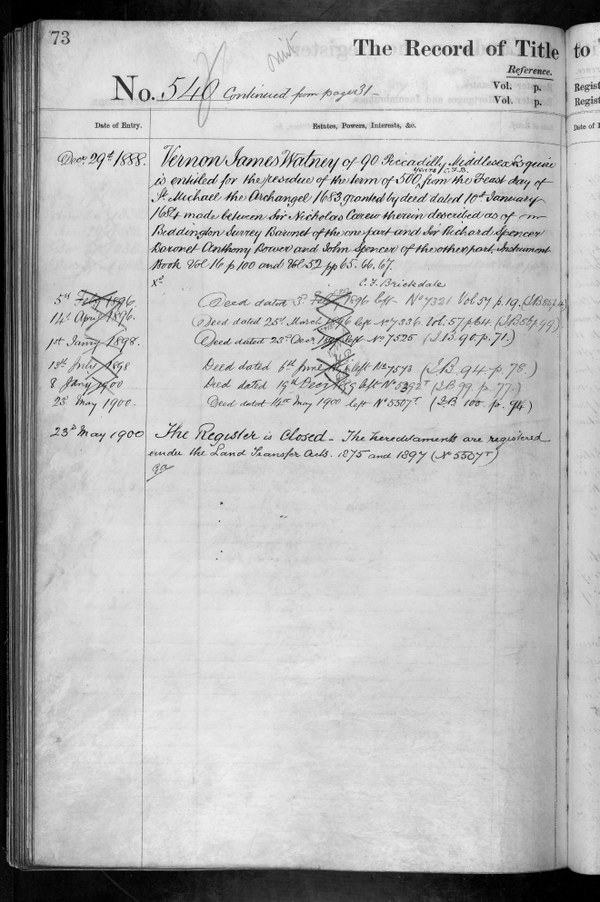 73
The Record of Title
to
Reference.
No. 540 Continued from page 31-
Vol. p.
Vol. p.
Regist
Regist
Date of Entry.
Estates, Powers, Interests, &c.
Date of
Decr 29th 1888.
Vernon James Watney of 90 Piccadilly Middlesex Esquire
years C.F.B.
is entitled for the residue of the term of 500 from the Feast day of
St. Michael the Archangel 1683 granted by deed dated 10th January
1684 made between Sir Nicholas Carew therein described as of
Beddington Surrey Baronet of the one part and Sir Richard Spencer
Baronet Anthony Bower and John Spencer of the other part. Instrument
Book Vol 16 p 100 and Vol. 52 pp 65. 66. 67.
C. F. Brickdale
5th Feby 1896. Deed dated 5th Feby 1896 left No 7321 Vol 57 p. 19.
14th April 1896. Deed dated 25th March 1896 left No 7336. Vol. 57 p 64.
1st Jany 1898. Deed dated 23rd Decr left No 7525 (I.B. 90. p. 71.)
13th 1898 Deed dated 6th June left No 7573 (I.B. 94. p. 78.)
8 Jany 1900 Deed dated 19th Decr left No 5392T (I.B. 99. p. 77.)
23rd May 1900. Deed dated 14th May 1900 left No 5507T (I.B 100. p. 94)
23rd May 1900 The Register is Closed - The hereditaments are registered
under the Land Transfer Acts. 1875 and 1897 (No 5507T)